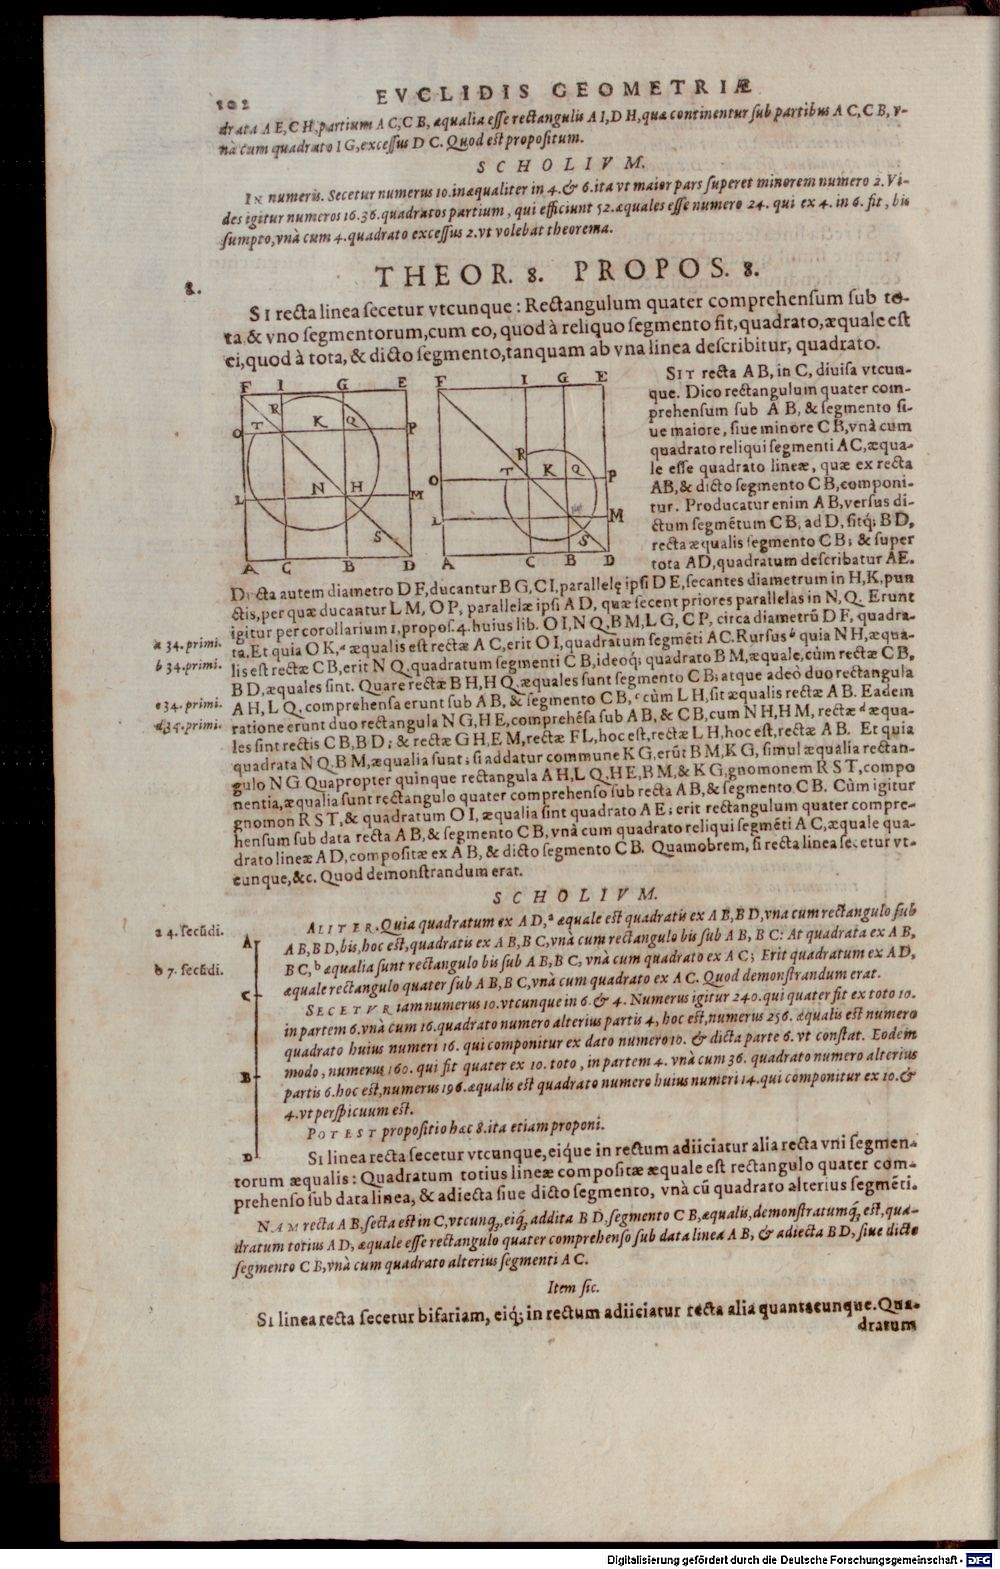 102 EVCLIDIS GEOMETRIÆ
drata A E, C H, partium A C, C B, æqualia esse rectangulis A I, D H, quæ continentur sub partibus A C, C B, v-
nà cum quadrato I G, excessus D C. Quod est propositum.
SCHOLIVM.
IN numeris. Secetur numerus 10. inæqualiter in 4. & 6. ita vt maior pars superet minorem numero 2. Vi-
des igitur numeros 16. 36. quadratos partium, qui efficiunt 52. æquales esse numero 24. qui ex 4. in 6. fit, bis
sumpto, vnà cum 4. quadrato excessus 2. vt volebat theorema.
THEOR. 8. PROPOS. 8.
8.
SI recta linea secetur vtcunque: Rectangulum quater comprehensum sub to-
ta & vno segmentorum, cum eo, quod à reliquo segmento fit, quadrato, æquale est
ei, quod à tota, & dicto segmento, tanquam ab vna linea describitur, quadrato.
F I G E
R
T K Q
O P
N H
L M
S
A C B D
F I G E
R
T K Q
O P
L M
S
A C B D
SIT recta A B, in C, diuisa vtcun-
que. Dico rectangulum quater com-
prehensum sub A B, & segmento si-
ue maiore, siue minore C B, vnà cum
quadrato reliqui segmenti A C, æqua-
le esse quadrato lineæ, quæ ex recta
A B, & dicto segmento C B, componi-
tur. Producatur enim A B, versus di-
ctum segmētum C B, ad D, sitq́; B D,
recta æqualis segmento C B; & super
tota A D, quadratum describatur A E.
Ducta autem diametro D F, ducantur B G, C I, parallelę ipsi D E, secantes diametrum in H, K, pun
ctis, per quæ ducantur L M, O P, parallelæ ipsi A D, quæ secent priores parallelas in N, Q. Erunt
igitur per corollarium 1, propos. 4. huius lib. O I, N Q, B M, L G, C P, circa diametrū D F, quadra-
ta. Et quia O K, a æqualis est rectæ A C, erit O I, quadratum segmēti A C. Rursus b quia N H, æqua-
lis est rectæ C B, erit N Q, quadratum segmenti C B, ideoq́; quadrato B M, æquale, cùm rectæ C B,
B D, æquales sint. Quare rectæ B H, H Q, æquales sunt segmento C B; atque adeò duo rectangula
A H, L Q, comprehensa erunt sub A B, & segmento C B, c cùm L H, sit æqualis rectæ A B. Eadem
ratione erunt duo rectangula N G, H E, comprehēsa sub A B, & C B, cum N H, H M, rectæ d æqua-
les sint rectis C B, B D; & rectæ G H, E M, rectæ F L, hoc est, rectæ L H, hoc est, rectæ A B. Et quia
quadrata N Q, B M, æqualia sunt; si addatur commune K G, erūt B M, K G, simul æqualia rectan-
gulo N G. Quapropter quinque rectangula A H, L Q, H E, B M, & K G, gnomonem R S T, compo
nentia, æqualia sunt rectangulo quater comprehenso sub recta A B, & segmento C B. Cùm igitur
gnomon R S T, & quadratum O I, æqualia sint quadrato A E; erit rectangulum quater compre-
hensum sub data recta A B, & segmento C B, vnà cum quadrato reliqui segmēti A C, æquale qua-
drato lineæ A D, compositæ ex A B, & dicto segmento C B. Quamobrem, si recta linea secetur vt-
cunque, &c. Quod demonstrandum erat.
a 34. primi.
b 34. primi.
c 34. primi.
d 34. primi.
SCHOLIVM.
ALITER. Quia quadratum ex A D, a æquale est quadratis ex A B, B D, vna cum rectangulo sub
A B, B D, bis, hoc est, quadratis ex A B, B C, vnà cum rectangulo bis sub A B, B C: At quadrata ex A B,
B C, b æqualia sunt rectangulo bis sub A B, B C, vnà cum quadrato ex A C; Erit quadratum ex A D,
æquale rectangulo quater sub A B, B C, vnà cum quadrato ex A C. Quod demonstrandum erat.
a 4. secūdi.
b 7. secūdi.
A
C
B
D
SECETVR iam numerus 10. vtcunque in 6. & 4. Numerus igitur 240. qui quater fit ex toto 10.
in partem 6. vnà cum 16. quadrato numero alterius partis 4, hoc est, numerus 256. æqualis est numero
quadrato huius numeri 16. qui componitur ex dato numero 10. & dicta parte 6. vt constat. Eodem
modo, numerus 160. qui fit quater ex 10. toto, in partem 4. vnà cum 36. quadrato numero alterius
partis 6. hoc est, numerus 196. æqualis est quadrato numero huius numeri 14. qui componitur ex 10. &
4. vt perspicuum est.
POTEST propositio hæc 8. ita etiam proponi.
SI linea recta secetur vtcunque, eiq́ue in rectum adiiciatur alia recta vni segmen-
torum æqualis: Quadratum totius lineæ compositæ æquale est rectangulo quater com-
prehenso sub data linea, & adiecta siue dicto segmento, vnà cū quadrato alterius segmēti.
NAM recta A B, secta est in C, vtcunq;, eiq́; addita B D, segmento C B, æqualis, demonstratumq́; est, qua-
dratum totius A D, æquale esse rectangulo quater comprehenso sub data linea A B, & adiecta B D, siue dicto
segmento C B, vnà cum quadrato alterius segmenti A C.
Item sic.
SI linea recta secetur bifariam, eiq́; in rectum adiiciatur recta alia quantacunque. Qua-
dratum
Digitalisierung gefördert durch die Deutsche Forschungsgemeinschaft - DFG